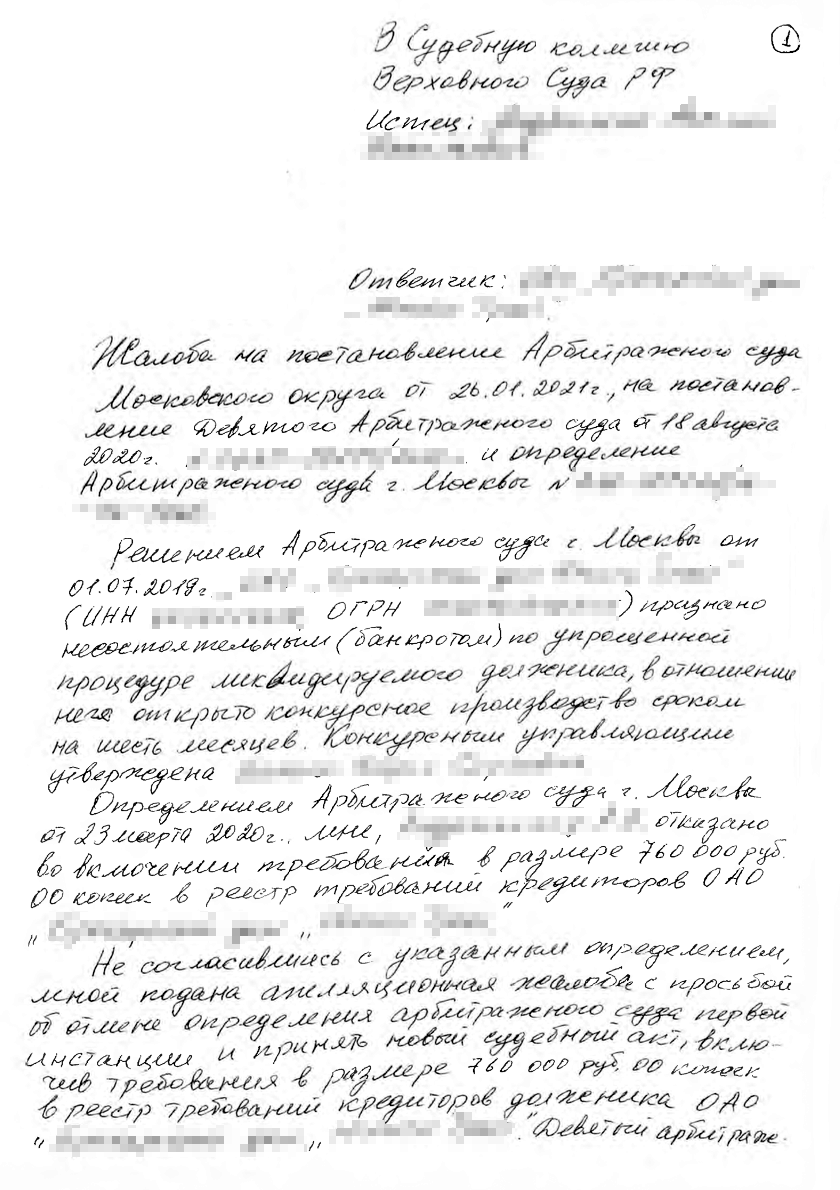 1
В Судебную коллегию
Верховного Суда РФ
Истец:
Ответчик:
Жалоба на постановление Арбитражного суда
Московского округа от 26.01.2021г., на постанов-
ление Девятого Арбитражного суда от 18 августа
2020г. и определение
Арбитражного суда г. Москвы N
Решением Арбитражного суда г. Москвы от
01.07.2019г.
(ИНН ОГРН ) признано
несостоятельным (банкротом) по упрощенной
процедуре ликвидируемого должника, в отношении
него открыто конкурсное производство сроком
на шесть месяцев. Конкурсным управляющим
утверждена
Определением Арбитражного суда г. Москва
от 23 марта 2020г. мне, отказано
во включении требований в размере 760 000 руб.
00 копик в реестр требований кредиторов ОАО
" "
Не согласившись с указанным определением,
мной подана апелляционная жалоба с просьбой
об отмене определения арбитражного суда первой
инстанции и принять новый судебный акт, вклю-
чив требования в размере 760 000 руб. 00 копеек
в реестр требований кредиторов должника ОАО
" " Девятый арбитраж-